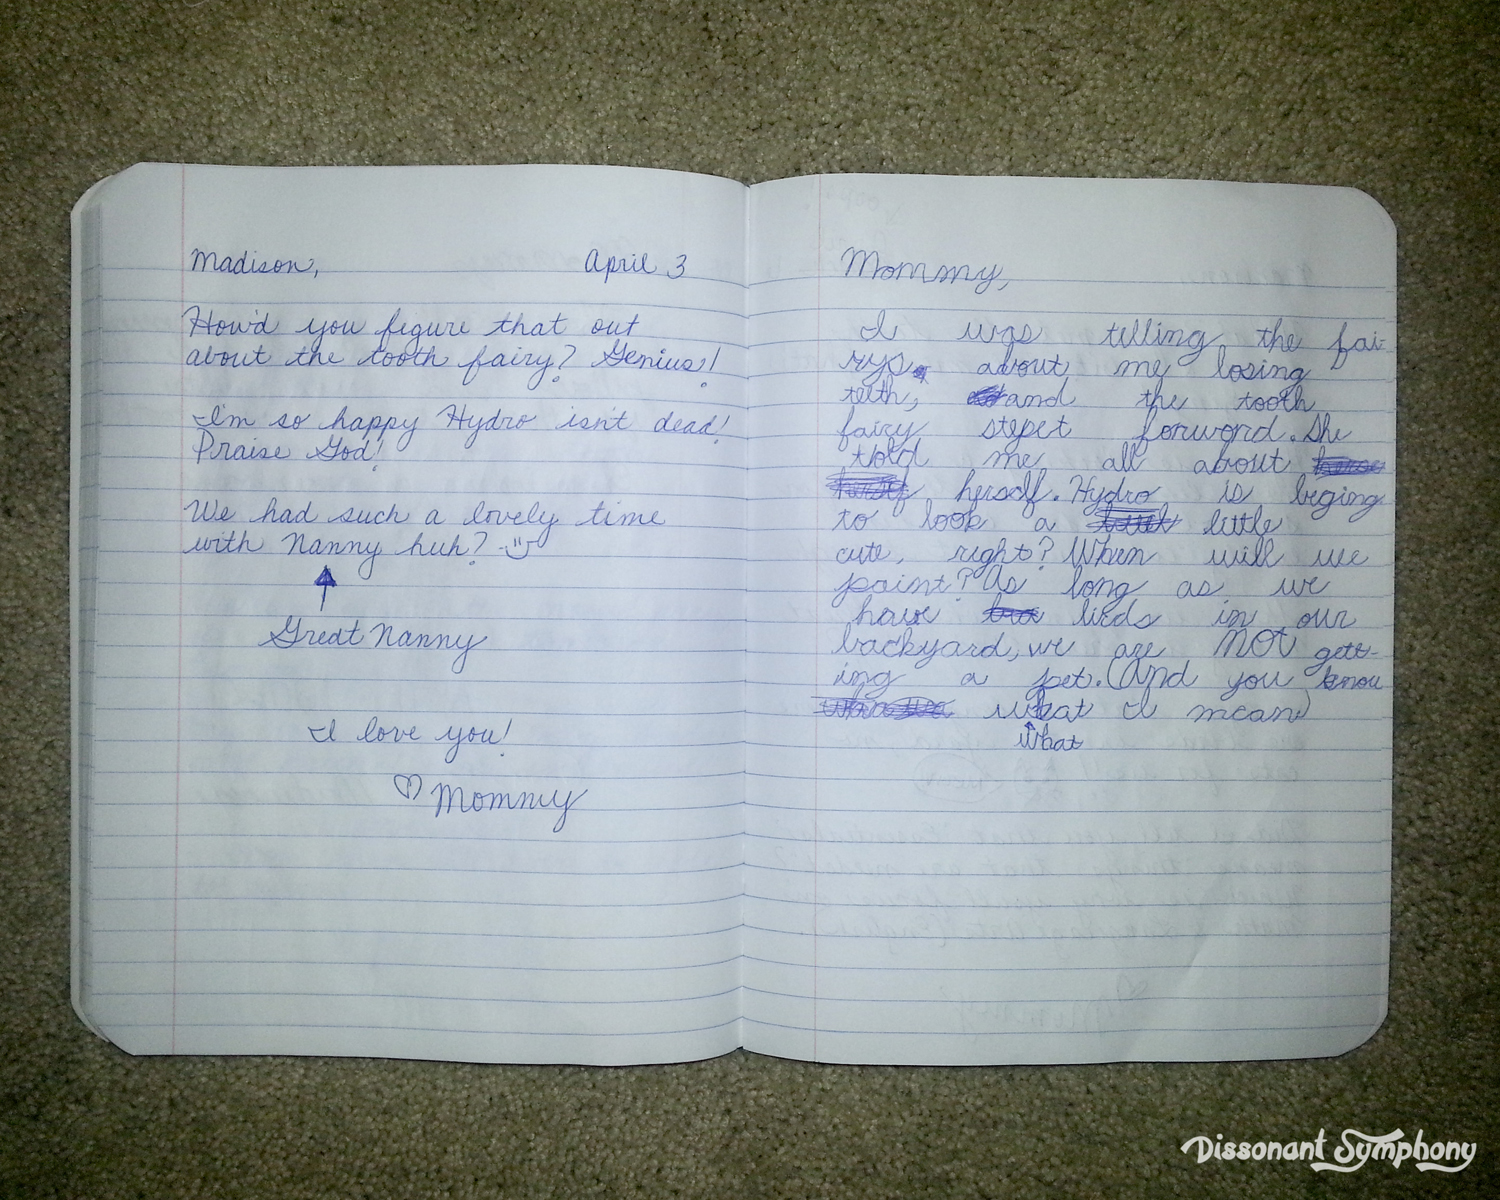 Madison, April 3
How'd you figure that out
about the tooth fairy? Genius!
I'm so happy Hydro isn't dead!
Praise God!
We had such a lovely time
with Nanny huh?
Great Nanny
I love you!
Mommy
Mommy,
I was telling the fai-
rys about my losing
teeth, and the tooth
fairy stepet forword. She
told me all about
herself. Hydro is beging
to look a little
cute, right? When will we
paint? As long as we
have birds in our
backyard, we are NOT gett-
ing a pet. (And you know
what I mean)
what
Dissonant Symphony